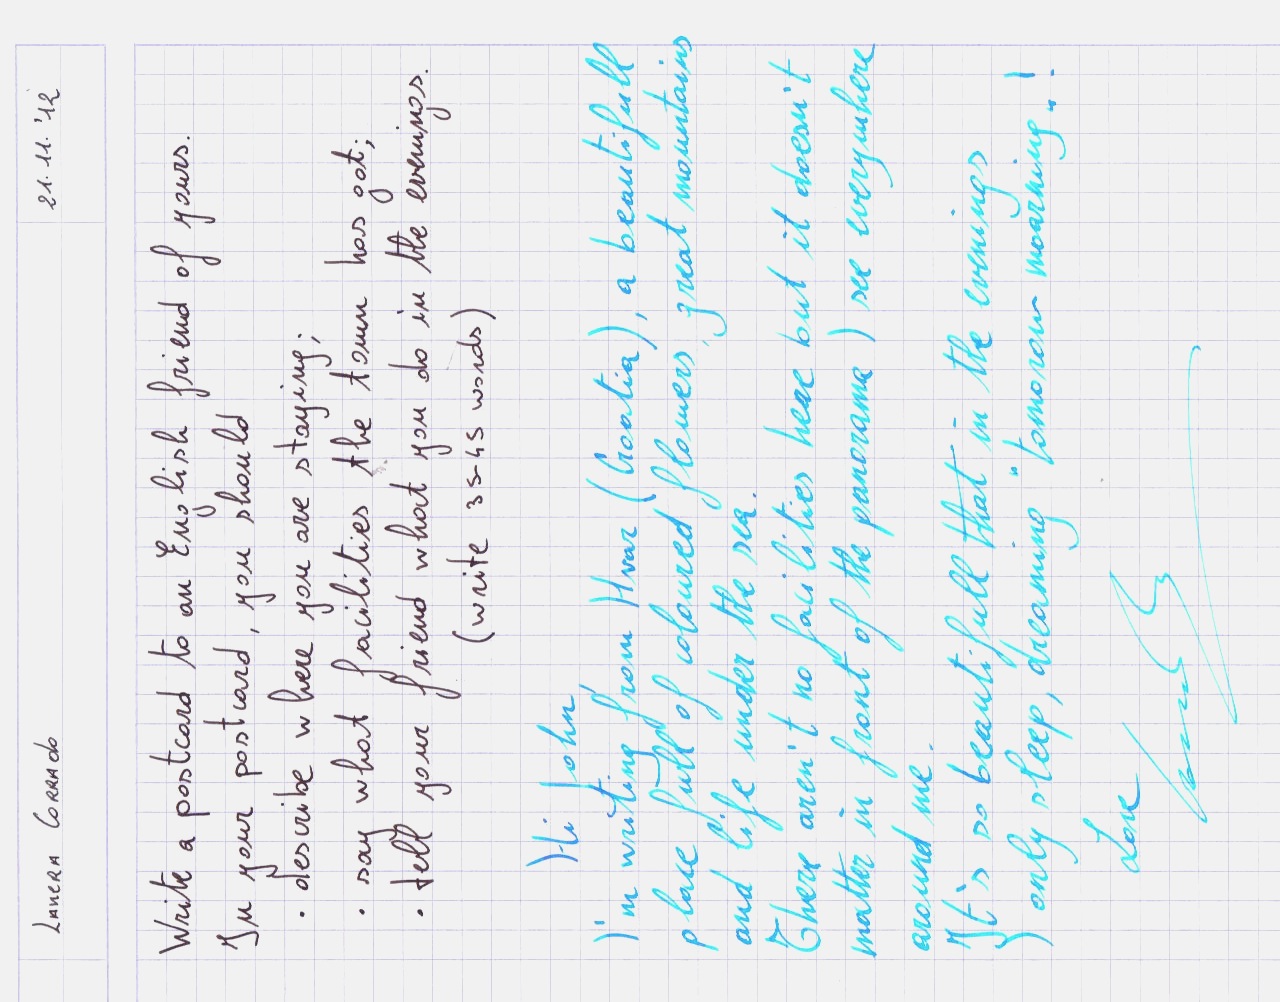 LANERA CORRADO
21.11.'12
Write a postcard to an English friend of yours.
In your postcard, you should
• describe where you are staying;
• say what facilities the town has got;
• tell your friend what you do in the evenings.
(write 35-45 words)
Hi John,
I'm writing from Hvar (Croatia), a beautifull
place full of coloured flowers, great mountains
and life under the sea.
There aren't no facilities hear but it doesn't
matter in front of the panorama I see everywhere
around me.
It's so beautifull that in the evenings
I only sleep, dreaming "tomorrow moarning"!
Love